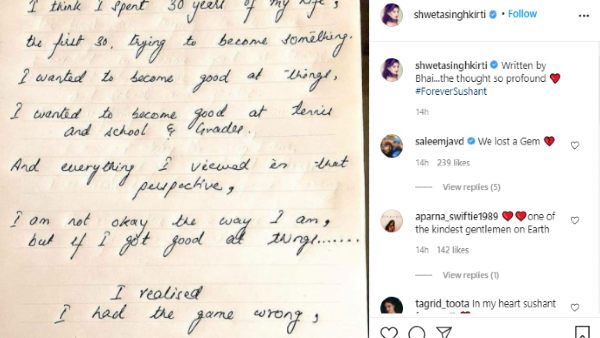 I think I spent 30 years of my life,
the first 30, trying to become something.
I wanted to become good at things,
I wanted to become good at tennis
and school & Grades.
And everything I viewed in that
perspective,
I am not okay the way I am,
but if I got good at things.......
I realised
I had the game wrong,
shwetasinghkirti • Follow
shwetasinghkirti Written by
Bhai...the thought so profound ❤
#ForeverSushant
14h
saleemjavd We lost a Gem 💔
14h 239 likes
View replies (5)
aparna_swiftie1989 ❤❤one of
the kindest gentlemen on Earth
14h 142 likes
View replies (1)
tagrid_toota In my heart sushant